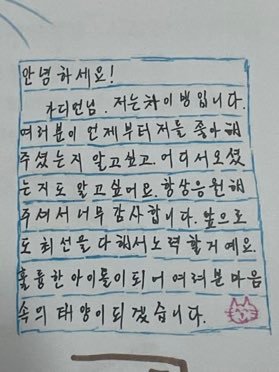 안녕하세요!
차디언님. 저는 차이밍입니다.
여러분이 언제부터 저를 좋아해
주셨는지 알고싶고. 어디서 오셨
는지도 알고싶어요. 항상응원해
주셔서 너무 감사합니다. 앞으로
도 최선을 다해서 노력할거예요.
훌륭한 아이돌이 되어 여려분 마음
속의 태양이 되겠습니다.